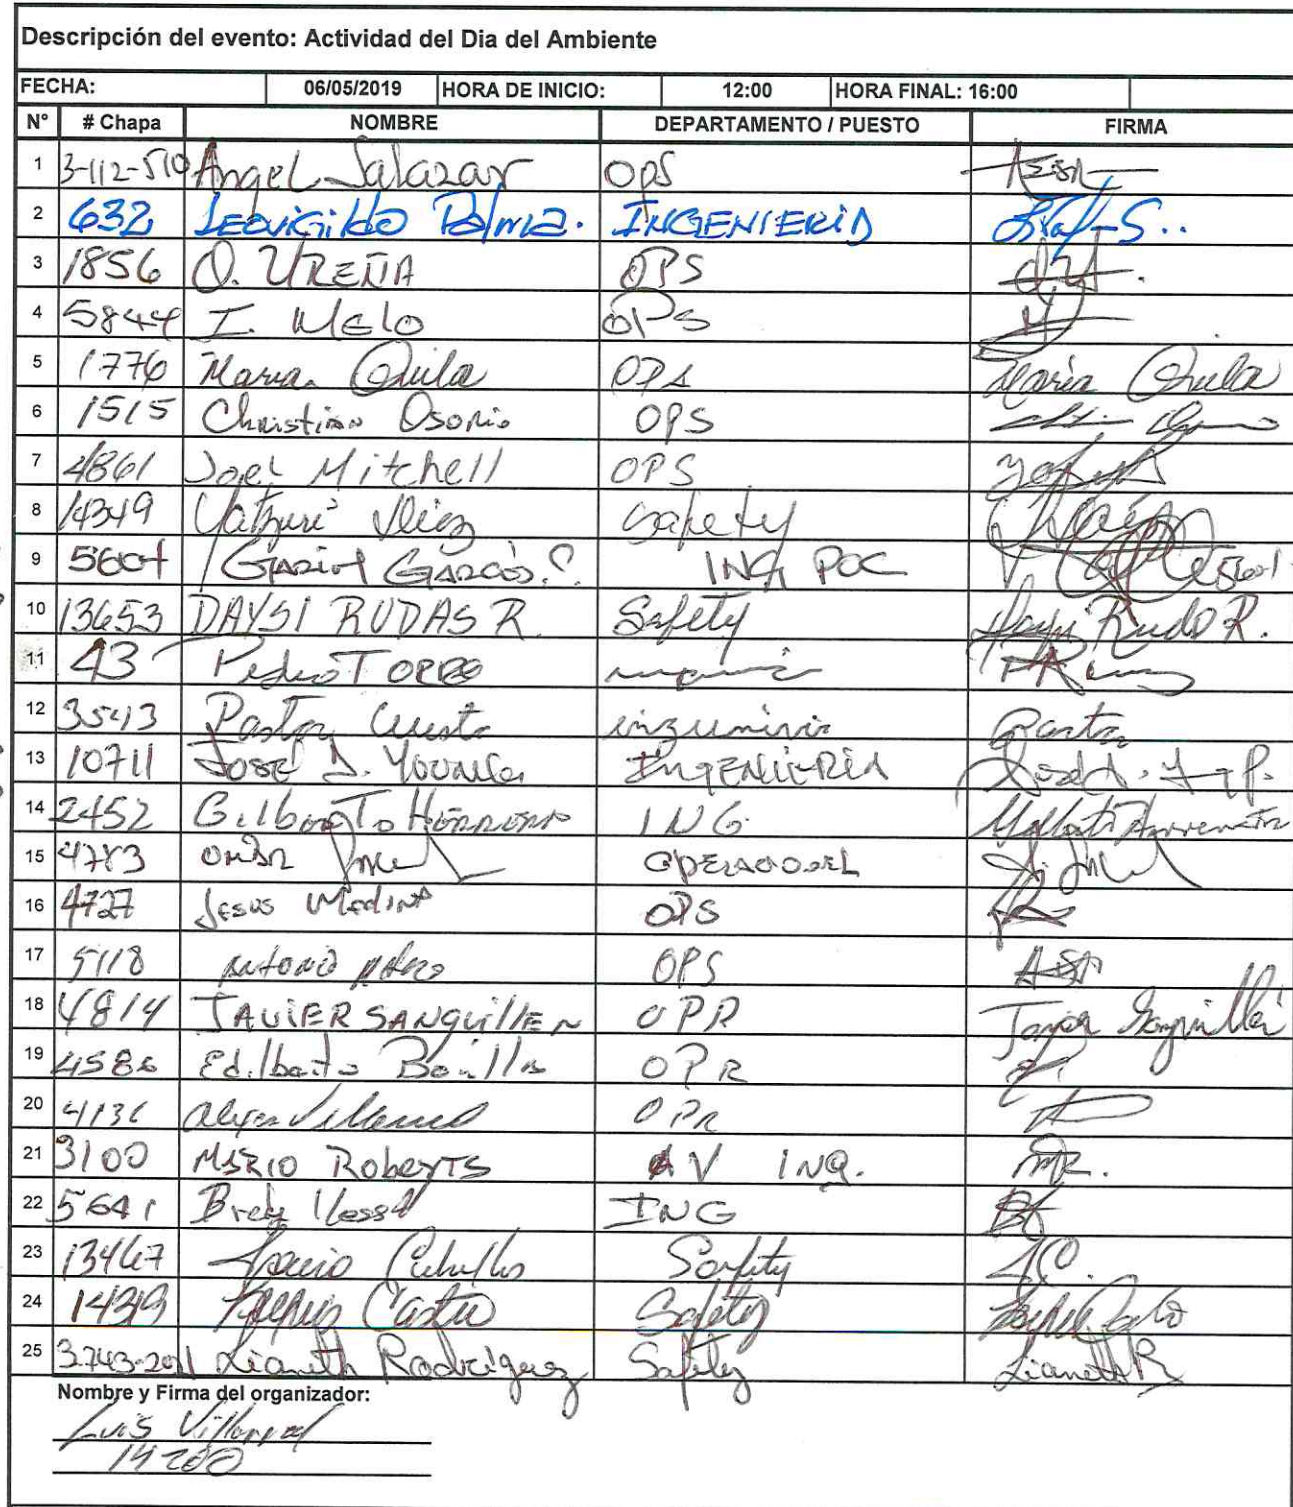 Descripción del evento: Actividad del Dia del Ambiente
FECHA: 06/05/2019 HORA DE INICIO: 12:00 HORA FINAL: 16:00
N° # Chapa NOMBRE DEPARTAMENTO / PUESTO FIRMA
1 3-112-510 Angel Salazar OPS
2 632 Leovigildo Palma. INGENIERIA
3 1856 O. UREÑA OPS
4 5844 I. Melo OPS
5 1776 Maria OPS Maria
6 1515 Christian Osorio OPS
7 4861 Joel Mitchell OPS
8 14349 Safety
9 5604 ING POC
10 13653 DAYSI RUDAS R. Safety
11 43 Pedro
12 3543 Pastor Cuesta Pastor
13 10711 JOSE INGENIERIA
14 2452 Gilberto Herrera ING.
15 4783 OMAR
16 4727 Jesus Medina OPS
17 5118 Antonio OPS
18 4814 JAVIER SANGUILLEN OPR
19 Edilberto Bonilla OPR
20 OPR
21 3100 MARIO Roberts AV ING. MR.
22 5641 ING
23 13467 Safety
24 Castro Safety
25 3-743-201 Lianeth Rodriguez Safety Lianeth R
Nombre y Firma del organizador:
Luis Villarreal
14200